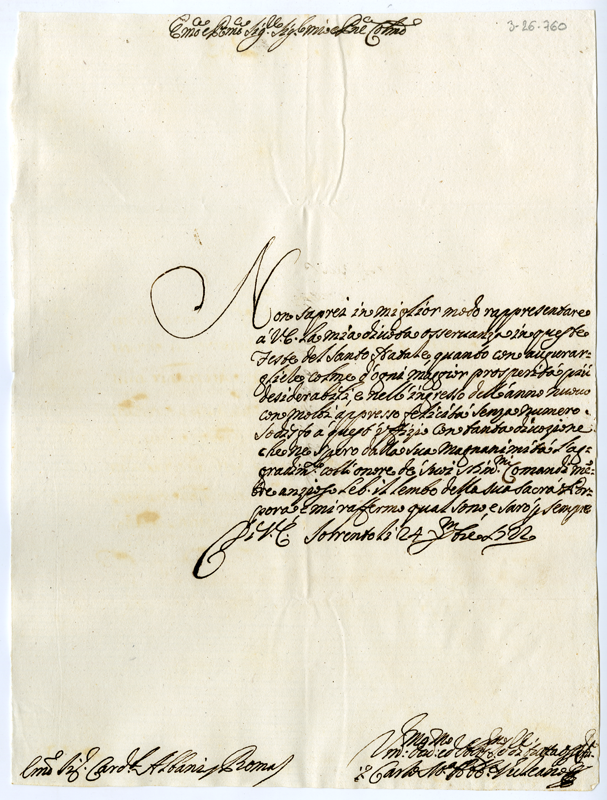 3-26-760
Em.o e Rmo Sig.r Sig.r mio e Pne Colmo
Non saprei in miglior modo rappresentare
á V.E. la mia divota osservanza in queste
Feste del Santo Natale, quando con augurar-
gliele colme d'ogni maggior prosperità piú
desiderabili, e nell'ingresso dell'anno nuovo
con molti appresso felicità senza numero.
Sodisfo a quest'Ufizio con tanta divozione
che ne spero dalla sua magnanimità l'ag-
gradim.to coll'onore de' suoi Comandi, m'en-
tre anzioso Le b. il lembo della sua sacra Por-
pora, e mi raffermo qual sono, e sarò p sempre
Di V.E. Sorrento li 24 Xbre
Emo Sig. Card.l Albani Roma
Carlo Vulcano